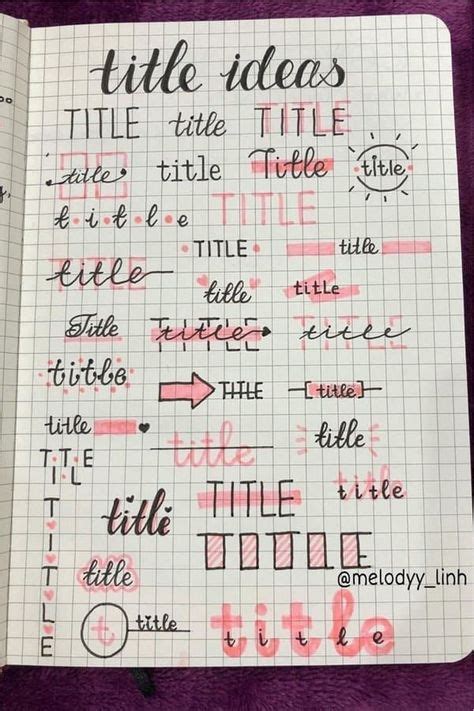 title ideas
TITLE title TITLE
title title Title title
t i t l e TITLE
TITLE title
title title titLe
Title title title
title TITLE title
title title title
TITLE
title TITLE title
TITLE TITLE
title @melodyy_linh
t title title
t i t l e